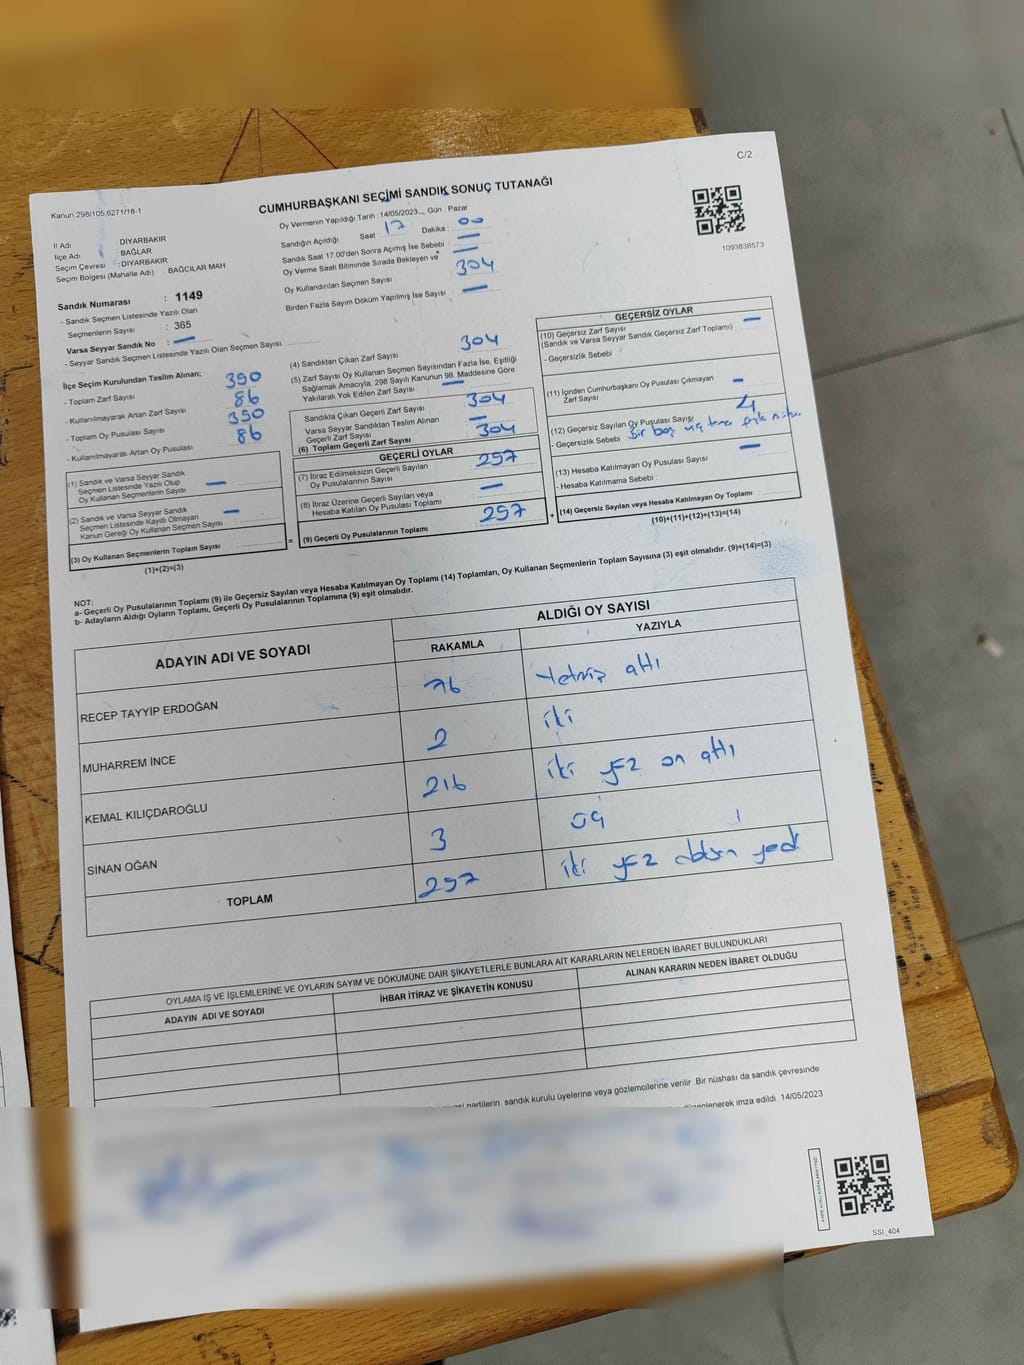 C/2
Kanun 298/105,6271/18-1
CUMHURBAŞKANI SEÇİMİ SANDIK SONUÇ TUTANAĞI
Oy Vermenin Yapıldığı Tarih : 14/05/2023 Gün : Pazar
1093638573
İl Adı : DİYARBAKIR
İlçe Adı : BAĞLAR
Seçim Çevresi : DİYARBAKIR
Seçim Bölgesi (Mahalle Adı) : BAĞCILAR MAH
Sandığın Açıldığı Saat 17 Dakika : 00
Sandık Saat 17:00'den Sonra Açımış İse Sebebi —
Oy Verme Saati Bitiminde Sırada Bekleyen ve —
Oy Kullandırılan Seçmen Sayısı 304
Birden Fazla Sayım Döküm Yapılmış İse Sayısı —
Sandık Numarası : 1149
- Sandık Seçmen Listesinde Yazılı Olan
Seçmenlerin Sayısı : 365
Varsa Seyyar Sandık No : —
- Seyyar Sandık Seçmen Listesinde Yazılı Olan Seçmen Sayısı
İlçe Seçim Kurulundan Teslim Alınan;
- Toplam Zarf Sayısı 390
- Kullanılmayarak Artan Zarf Sayısı 86
- Toplam Oy Pusulası Sayısı 390
- Kullanılmayarak Artan Oy Pusulası 86
(1) Sandık ve Varsa Seyyar Sandık
Seçmen Listesinde Yazılı Olup
Oy Kullanan Seçmenlerin Sayısı —
(2) Sandık ve Varsa Seyyar Sandık
Seçmen Listesinde Kayıtlı Olmayan
Kanun Gereği Oy Kullanan Seçmen Sayısı —
(3) Oy Kullanan Seçmenlerin Toplam Sayısı
(1)+(2)=(3)
(4) Sandıktan Çıkan Zarf Sayısı 304
(5) Zarf Sayısı Oy Kullanan Seçmen Sayısından Fazla İse, Eşitliği
Sağlamak Amacıyla, 298 Sayılı Kanunun 98. Maddesine Göre
Yakılarak Yok Edilen Zarf Sayısı —
Sandıkta Çıkan Geçerli Zarf Sayısı 304
Varsa Seyyar Sandıktan Teslim Alınan
Geçerli Zarf Sayısı —
(6) Toplam Geçerli Zarf Sayısı 304
GEÇERLİ OYLAR
(7) İtiraz Edilmeksizin Geçerli Sayılan
Oy Pusulası Sayısı 297
(8) İtiraz Üzerine Geçerli Sayılan veya
Hesaba Katılan Oy Pusulası Toplamı —
= (9) Geçerli Oy Pusulalarının Toplamı 297 +
GEÇERSİZ OYLAR
(10) Geçersiz Zarf Sayısı —
(Sandık ve Varsa Seyyar Sandık Geçersiz Zarf Toplamı)
- Geçersizlik Sebebi
(11) İçinden Cumhurbaşkanı Oy Pusulası Çıkmayan
Zarf Sayısı —
(12) Geçersiz Sayılan Oy Pusulası Sayısı 4
- Geçersizlik Sebebi bir boş üç tane
(13) Hesaba Katılmayan Oy Pusulası Sayısı —
- Hesaba Katılmama Sebebi :
(14) Geçersiz Sayılan veya Hesaba Katılmayan Oy Toplamı
(10)+(11)+(12)+(13)=(14)
NOT:
a- Geçerli Oy Pusulalarının Toplamı (9) ile Geçersiz Sayılan veya Hesaba Katılmayan Oy Toplamı (14) Toplamları, Oy Kullanan Seçmenlerin Toplam Sayısına (3) eşit olmalıdır. (9)+(14)=(3)
b- Adayların Aldığı Oyların Toplamı, Geçerli Oy Pusulalarının Toplamına (9) eşit olmalıdır.
ADAYIN ADI VE SOYADI
ALDIĞI OY SAYISI
RAKAMLA YAZIYLA
RECEP TAYYİP ERDOĞAN 76 Yetmiş altı
MUHARREM İNCE 2 iki
KEMAL KILIÇDAROĞLU 216 iki yüz on altı
SİNAN OĞAN 3 üç
TOPLAM 297 iki yüz doksan yedi
OYLAMA İŞ VE İŞLEMLERİNE VE OYLARIN SAYIM VE DÖKÜMÜNE DAİR ŞİKAYETLERLE BUNLARA AİT KARARLARIN NELERDEN İBARET BULUNDUKLARI
ADAYIN ADI VE SOYADI İHBAR İTİRAZ VE ŞİKAYETİN KONUSU ALINAN KARARIN NEDEN İBARET OLDUĞU
partilerin sandık kurulu üyelerine veya gözlemcilerine verilir. Bir nüshası da sandık çevresinde
imza edildi. 14/05/2023
SSI_404